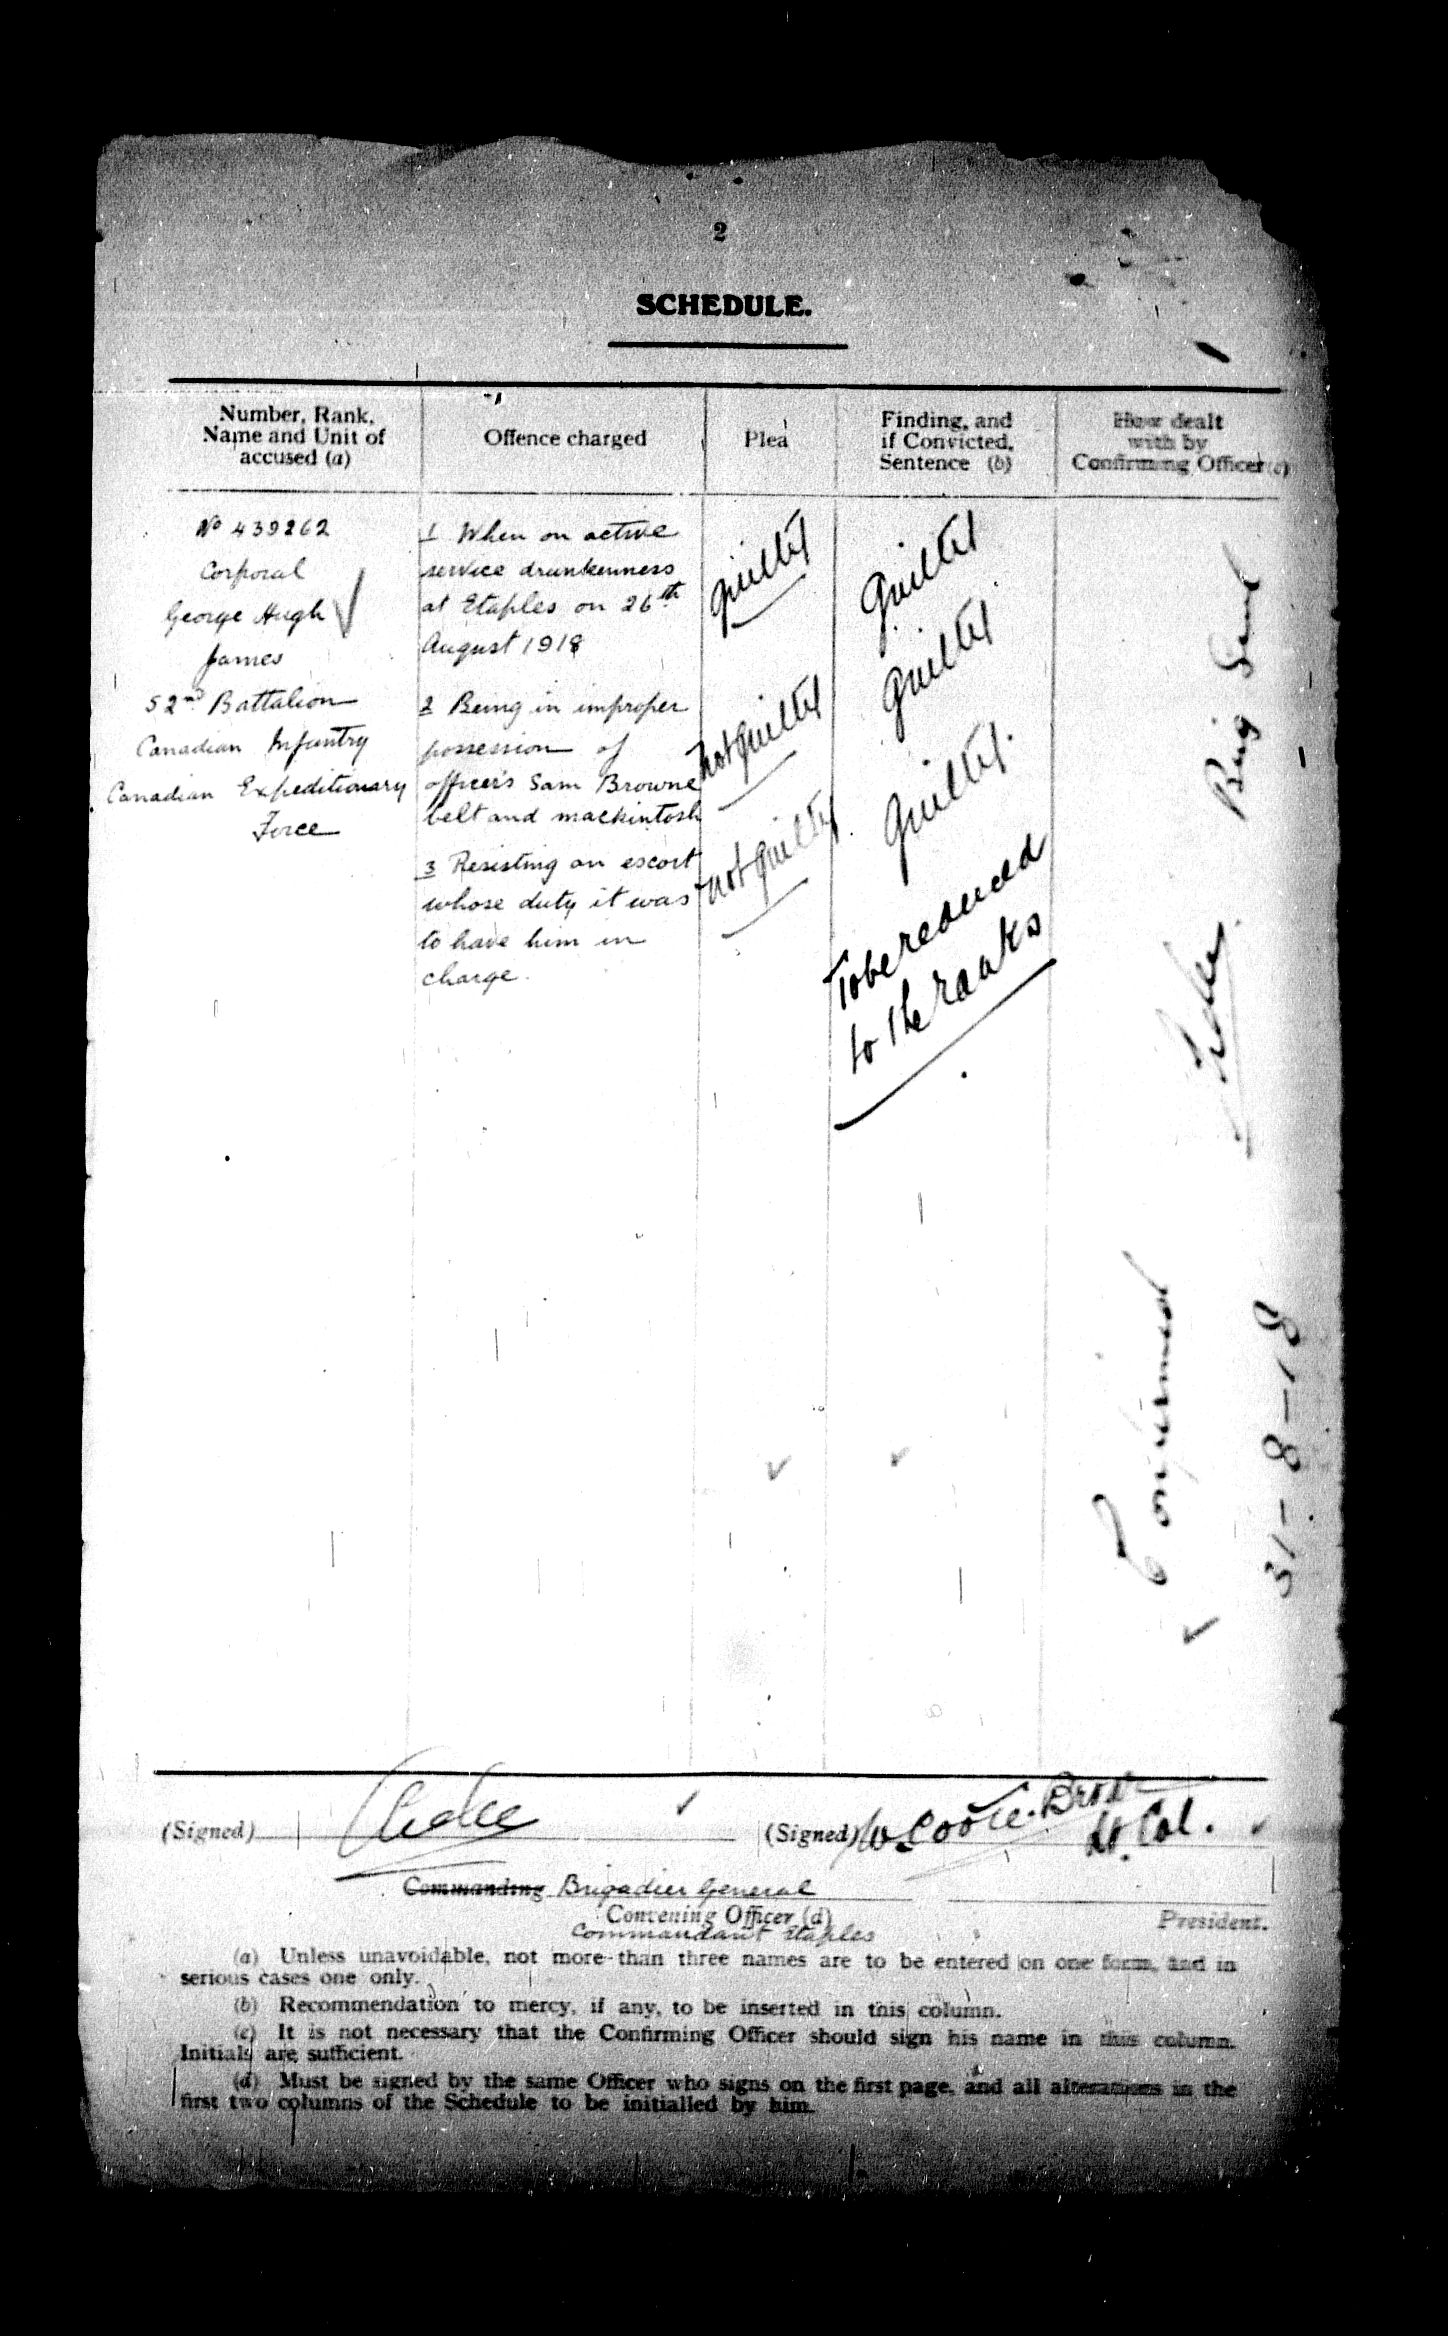 2
SCHEDULE.
Number, Rank,
Name and Unit of
accused (a)
Offence charged
Plea
Finding, and
if Convicted,
Sentence (b)
How dealt
with by
Confirming Officer (c)
No 439262
Corporal
George Hugh
James
52nd Battalion
Canadian Infantry
Canadian Expeditionary
Force
1 When on active
service drunkenness
at Etaples on 26th
August 1918
2 Being in improper
possession of
officer's Sam Browne
belt and mackintosh
3 Resisting an escort
whose duty it was
to have him in
charge.
guilty
not guilty
not guilty
Guilty
guilty
guilty.
To be reduced
to the ranks
Confirmed
Brig Genl
31-8-18
(Signed)
(Signed) W Coote. Brow
Lt. Col.
Commanding Brigadier General
Convening Officer (d)
President.
Commandant Etaples
(a) Unless unavoidable, not more than three names are to be entered on one form, and in
serious cases one only.
(b) Recommendation to mercy, if any, to be inserted in this column.
(c) It is not necessary that the Confirming Officer should sign his name in this column.
Initials are sufficient.
(d) Must be signed by the same Officer who signs on the first page, and all alterations in the
first two columns of the Schedule to be initialled by him.